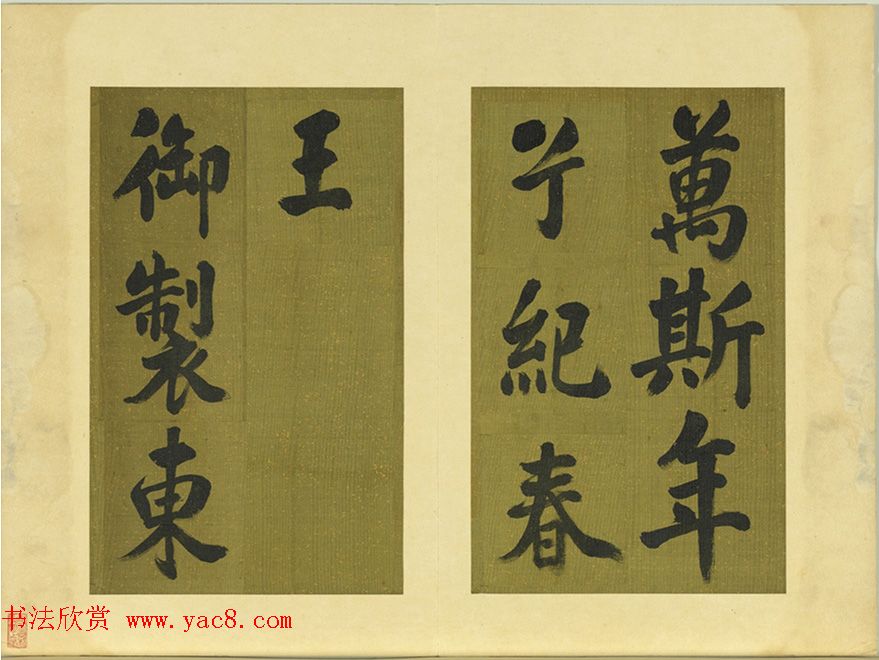 萬斯年
兮紀春
王
御製東
书法欣赏 www.yac8.com